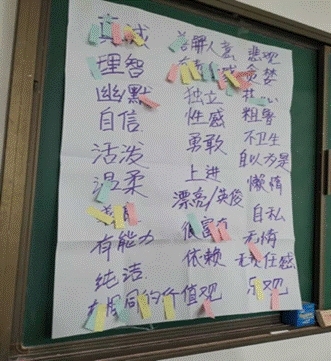 真诚 善解人意 悲观
理智 贪婪
幽默 独立
自信 性感 粗鲁
活泼 勇敢 不卫生
温柔 上进 自以为是
漂亮/英俊 懒惰
有能力 很富有 自私
纯洁 依赖 无情
有共同的价值观 无责任感
乐观